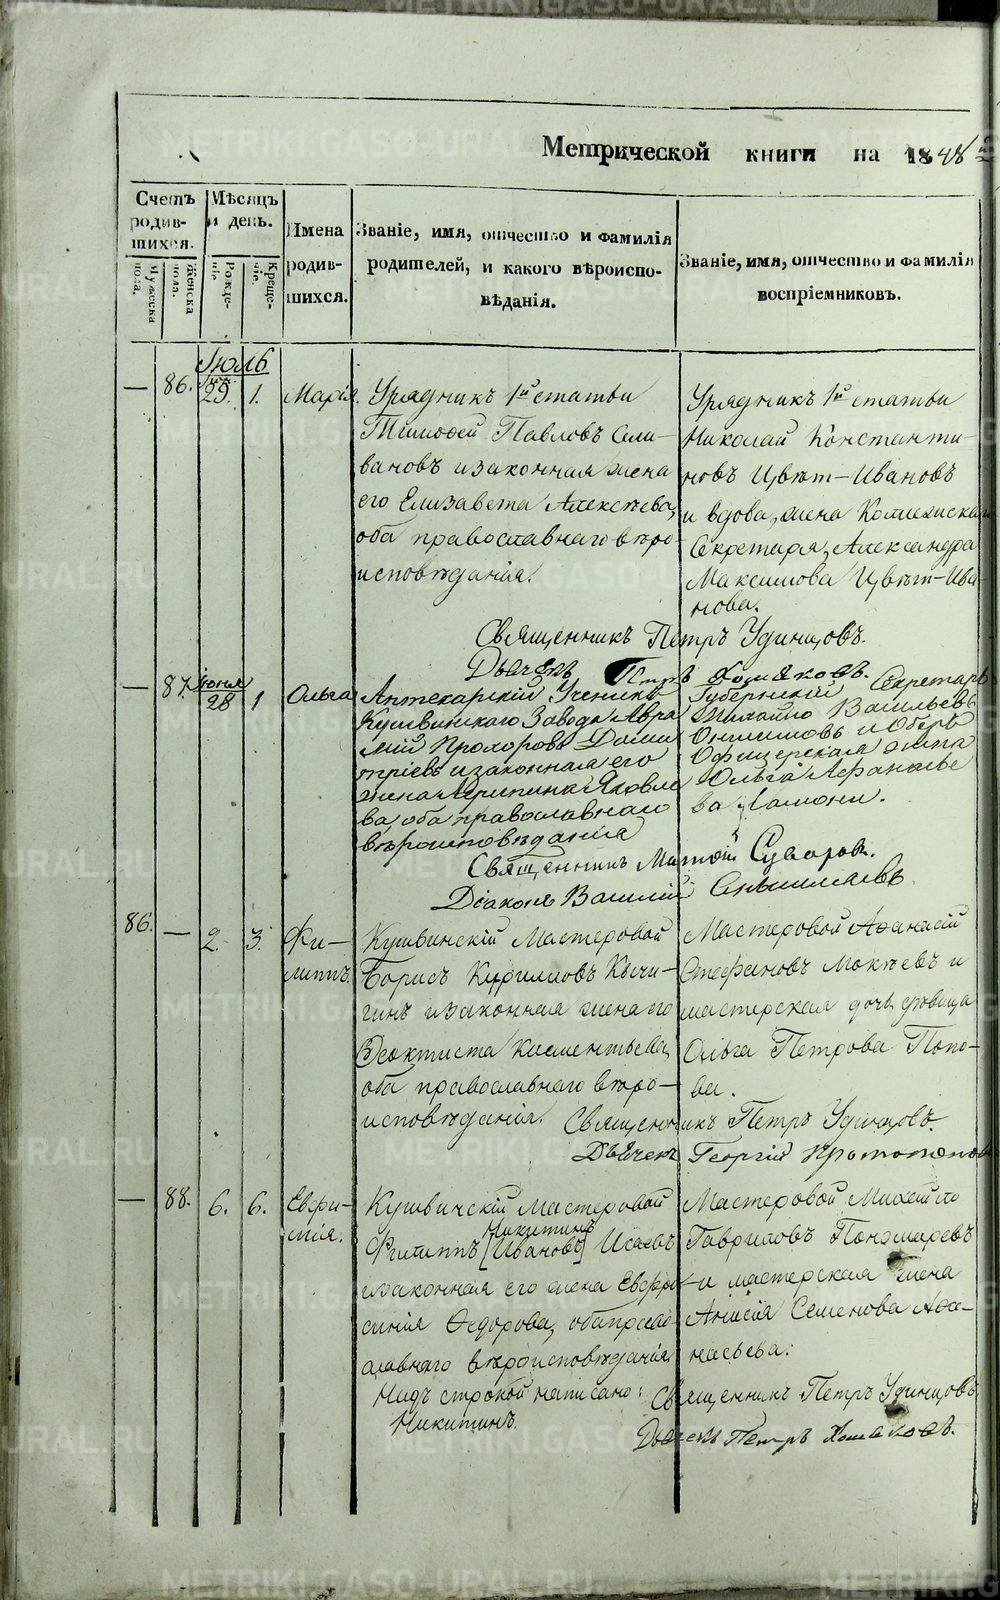 Метрической книги на 1848
Счетъ родив-шихся.
Мѣсяцъ и день.
Имена родив-шихся.
Званіе, имя, отчество и фамилія
родителей, и какого вѣроиспо-
вѣданія.
Званіе, имя, отчество и фамилія
воспріемниковъ.
Мужеска пола.
Женска пола.
Рожде-нія.
Креще-нія.
Іюль
— 86. 29. 1. Марія.
Урядникъ 1й статьи
Тимофей Павловъ Сели-
вановъ и законная жена
его Елизавета Алексѣева,
оба православнаго вѣро-
исповѣданія.
Урядникъ 1й статьи
Николай Константи-
новъ Цвѣт-Ивановъ
и вдова, жена
Секретаря, Александра
Максимова Цвѣт-Ива-
нова.
Священникъ Петръ Удинцовъ.
Дьячекъ Петръ Хошаковъ.
— 87. Іюня 28 1 Ольга
Аптекарскій Ученикъ
Кушвинскаго Завода Авра
мій Прохоровъ Дми
тріевъ и законная его
жена Агрипина Яковле
ва, оба православнаго
вѣроисповѣданія
Губернскій Секретарь
Михайло Васильевъ
и Оберъ
Офицерская жена
Ольга Афанасье
ва
Священникъ Суворовъ.
Діаконъ Василій
86. — 2. 3. Фи-
липпъ.
Кушвинскій Мастеровой
Борисъ Кирилловъ Кычи-
гинъ и законная жена его
Феоктиста Климентьева,
оба православнаго вѣро-
исповѣданія.
Мастеровой Афанасій
Стефановъ Мокѣевъ и
мастерская дочь, дѣвица
Ольга Петрова Попо-
ва.
Священникъ Петръ Удинцовъ.
Дьячекъ Георгій Протопоповъ
— 88. 6. 6. Евфи-
мія.
Кушвинскій мастеровой
Никитинъ
Филиппъ [Ивановъ] Исаевъ
и законная его жена Евфро-
синія Федорова, оба право-
славнаго вѣроисповѣданія,
Надъ строкой написано:
Никитинъ.
Мастеровой Михайло
Гавриловъ Пономаревъ
и мастерская жена
Анисія Семенова Афа-
насьева.
Священникъ Петръ Удинцовъ
Дьячекъ Петръ Хошаковъ.